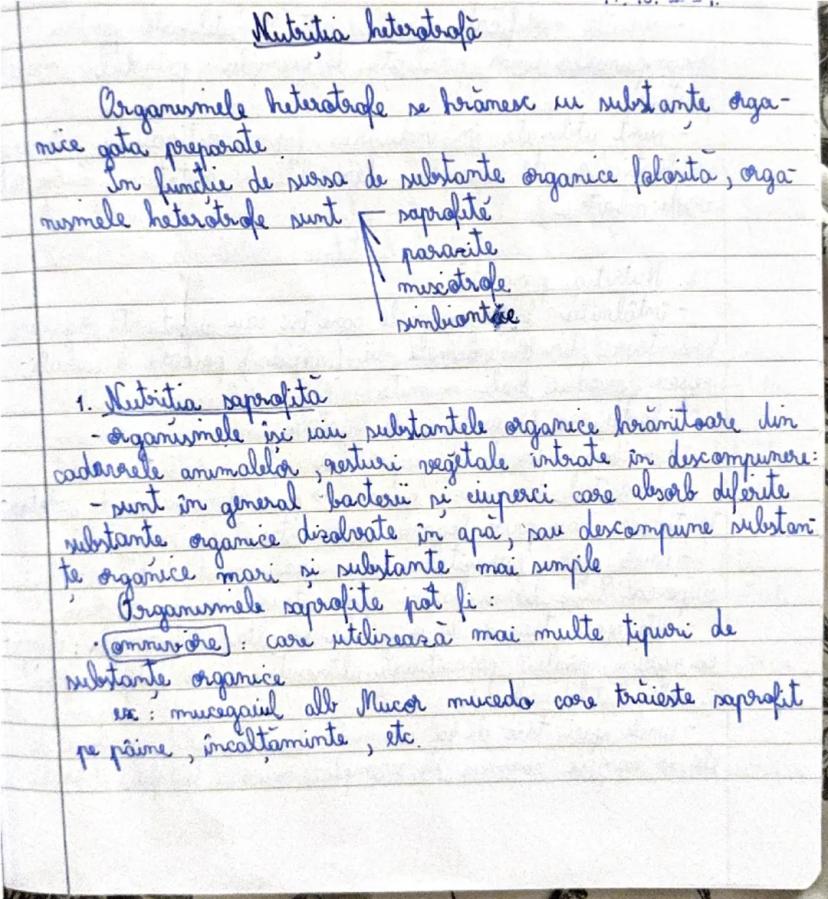 Nutriția heterotrofă
Organismele heterotrofe se hrănesc cu substanțe orga-
nice gata preparate.
În funcție de sursa de substanțe organice folosită, orga-
nismele heterotrofe sunt saprofite
parazite
mixotrofe
simbionte
1. Nutriția saprofită
- organismele își iau substanțele organice hrănitoare din
cadavrele animalelor, resturi vegetale intrate în descompunere:
- sunt în general bacterii și ciuperci care absorb diferite
substanțe organice dizolvate în apă, sau descompune substan-
țe organice mari și substanțe mai simple
Organismele saprofite pot fi:
· omnivore: care utilizează mai multe tipuri de
substanțe organice
ex: mucegaiul alb Mucor mucedo care trăiește saprofit
pe pâine, încălțăminte, etc.